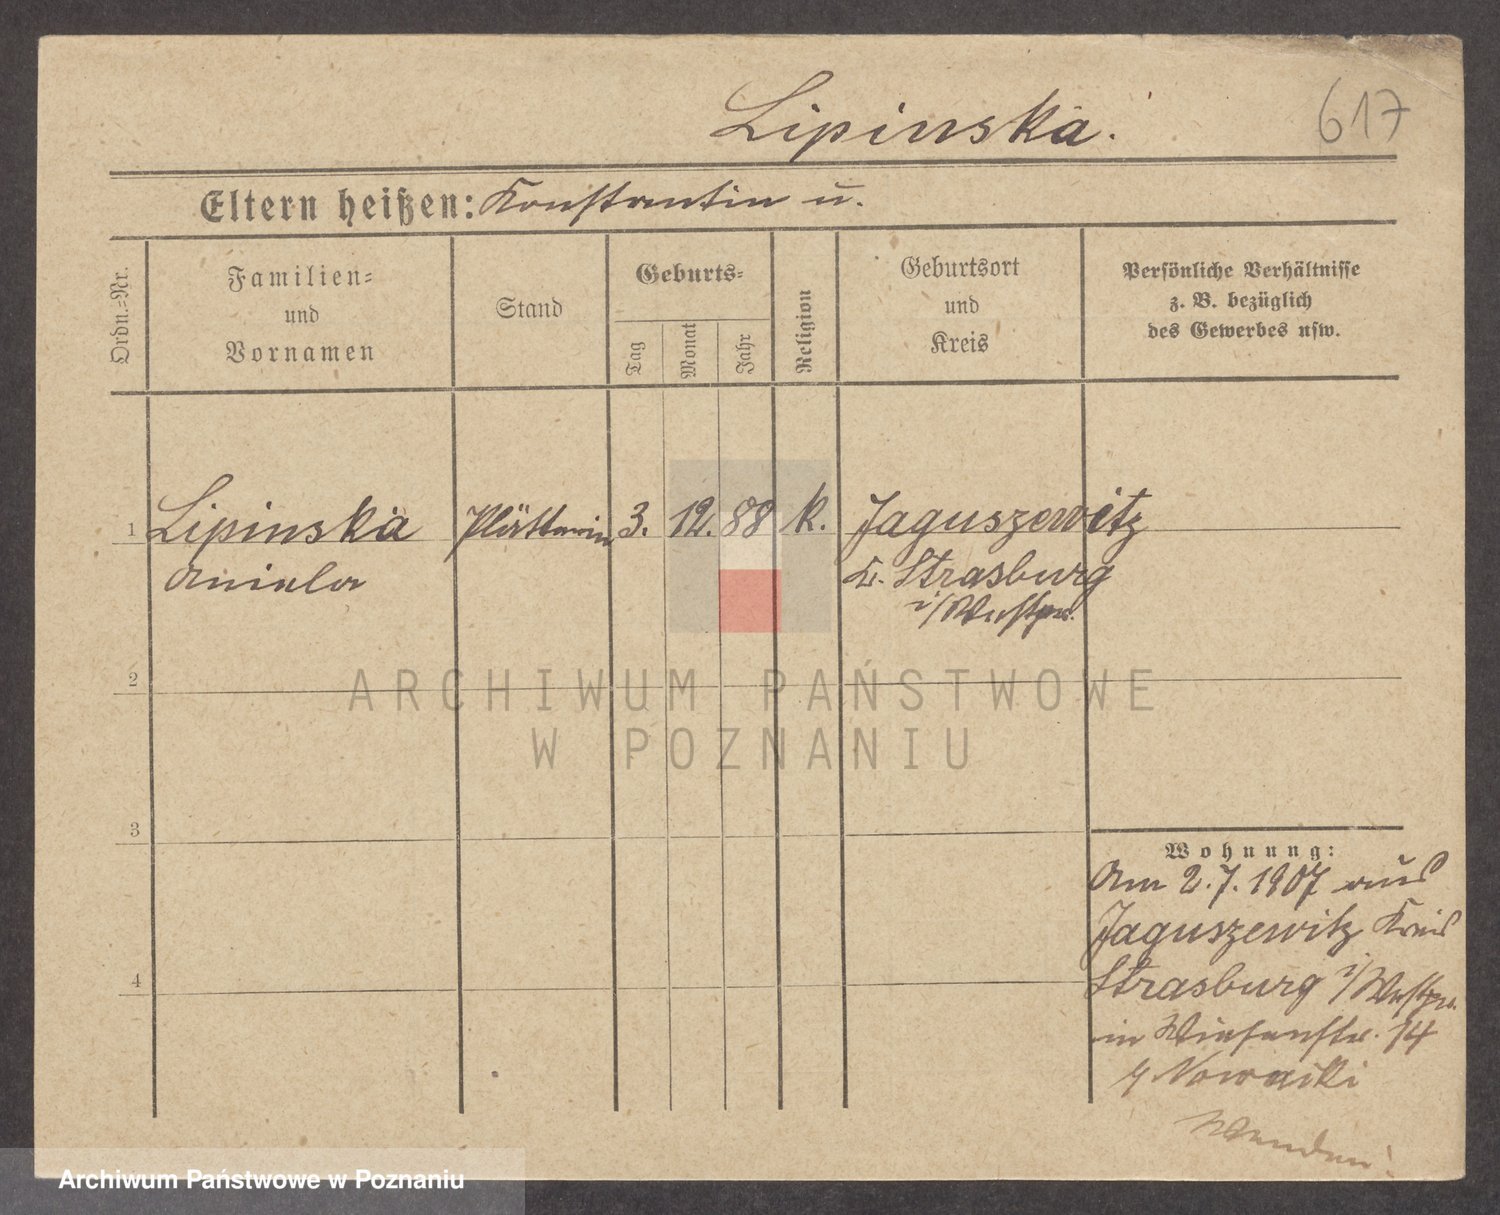 Lipinska.
617
Eltern heißen: Konstantin u.
Ordn.=Nr.
Familien=
und
Vornamen
Stand
Geburts=
Tag
Monat
Jahr
Religion
Geburtsort
und
Kreis
Persönliche Verhältnisse
z. B. bezüglich
des Gewerbes usw.
1 Lipinska Plätterin 3. 12. 88 k. Jaguszewitz
Aniela
Kr. Strasburg
i/Westpr.
2
ARCHIWUM PAŃSTWOWE
W POZNANIU
3
Wohnung:
Am 2.7.1907 aus
Jaguszewitz Kreis
Strasburg i/Westpr.
in Wiesenstr. 14
Nowacki
4
Wenden!
Archiwum Państwowe w Poznaniu